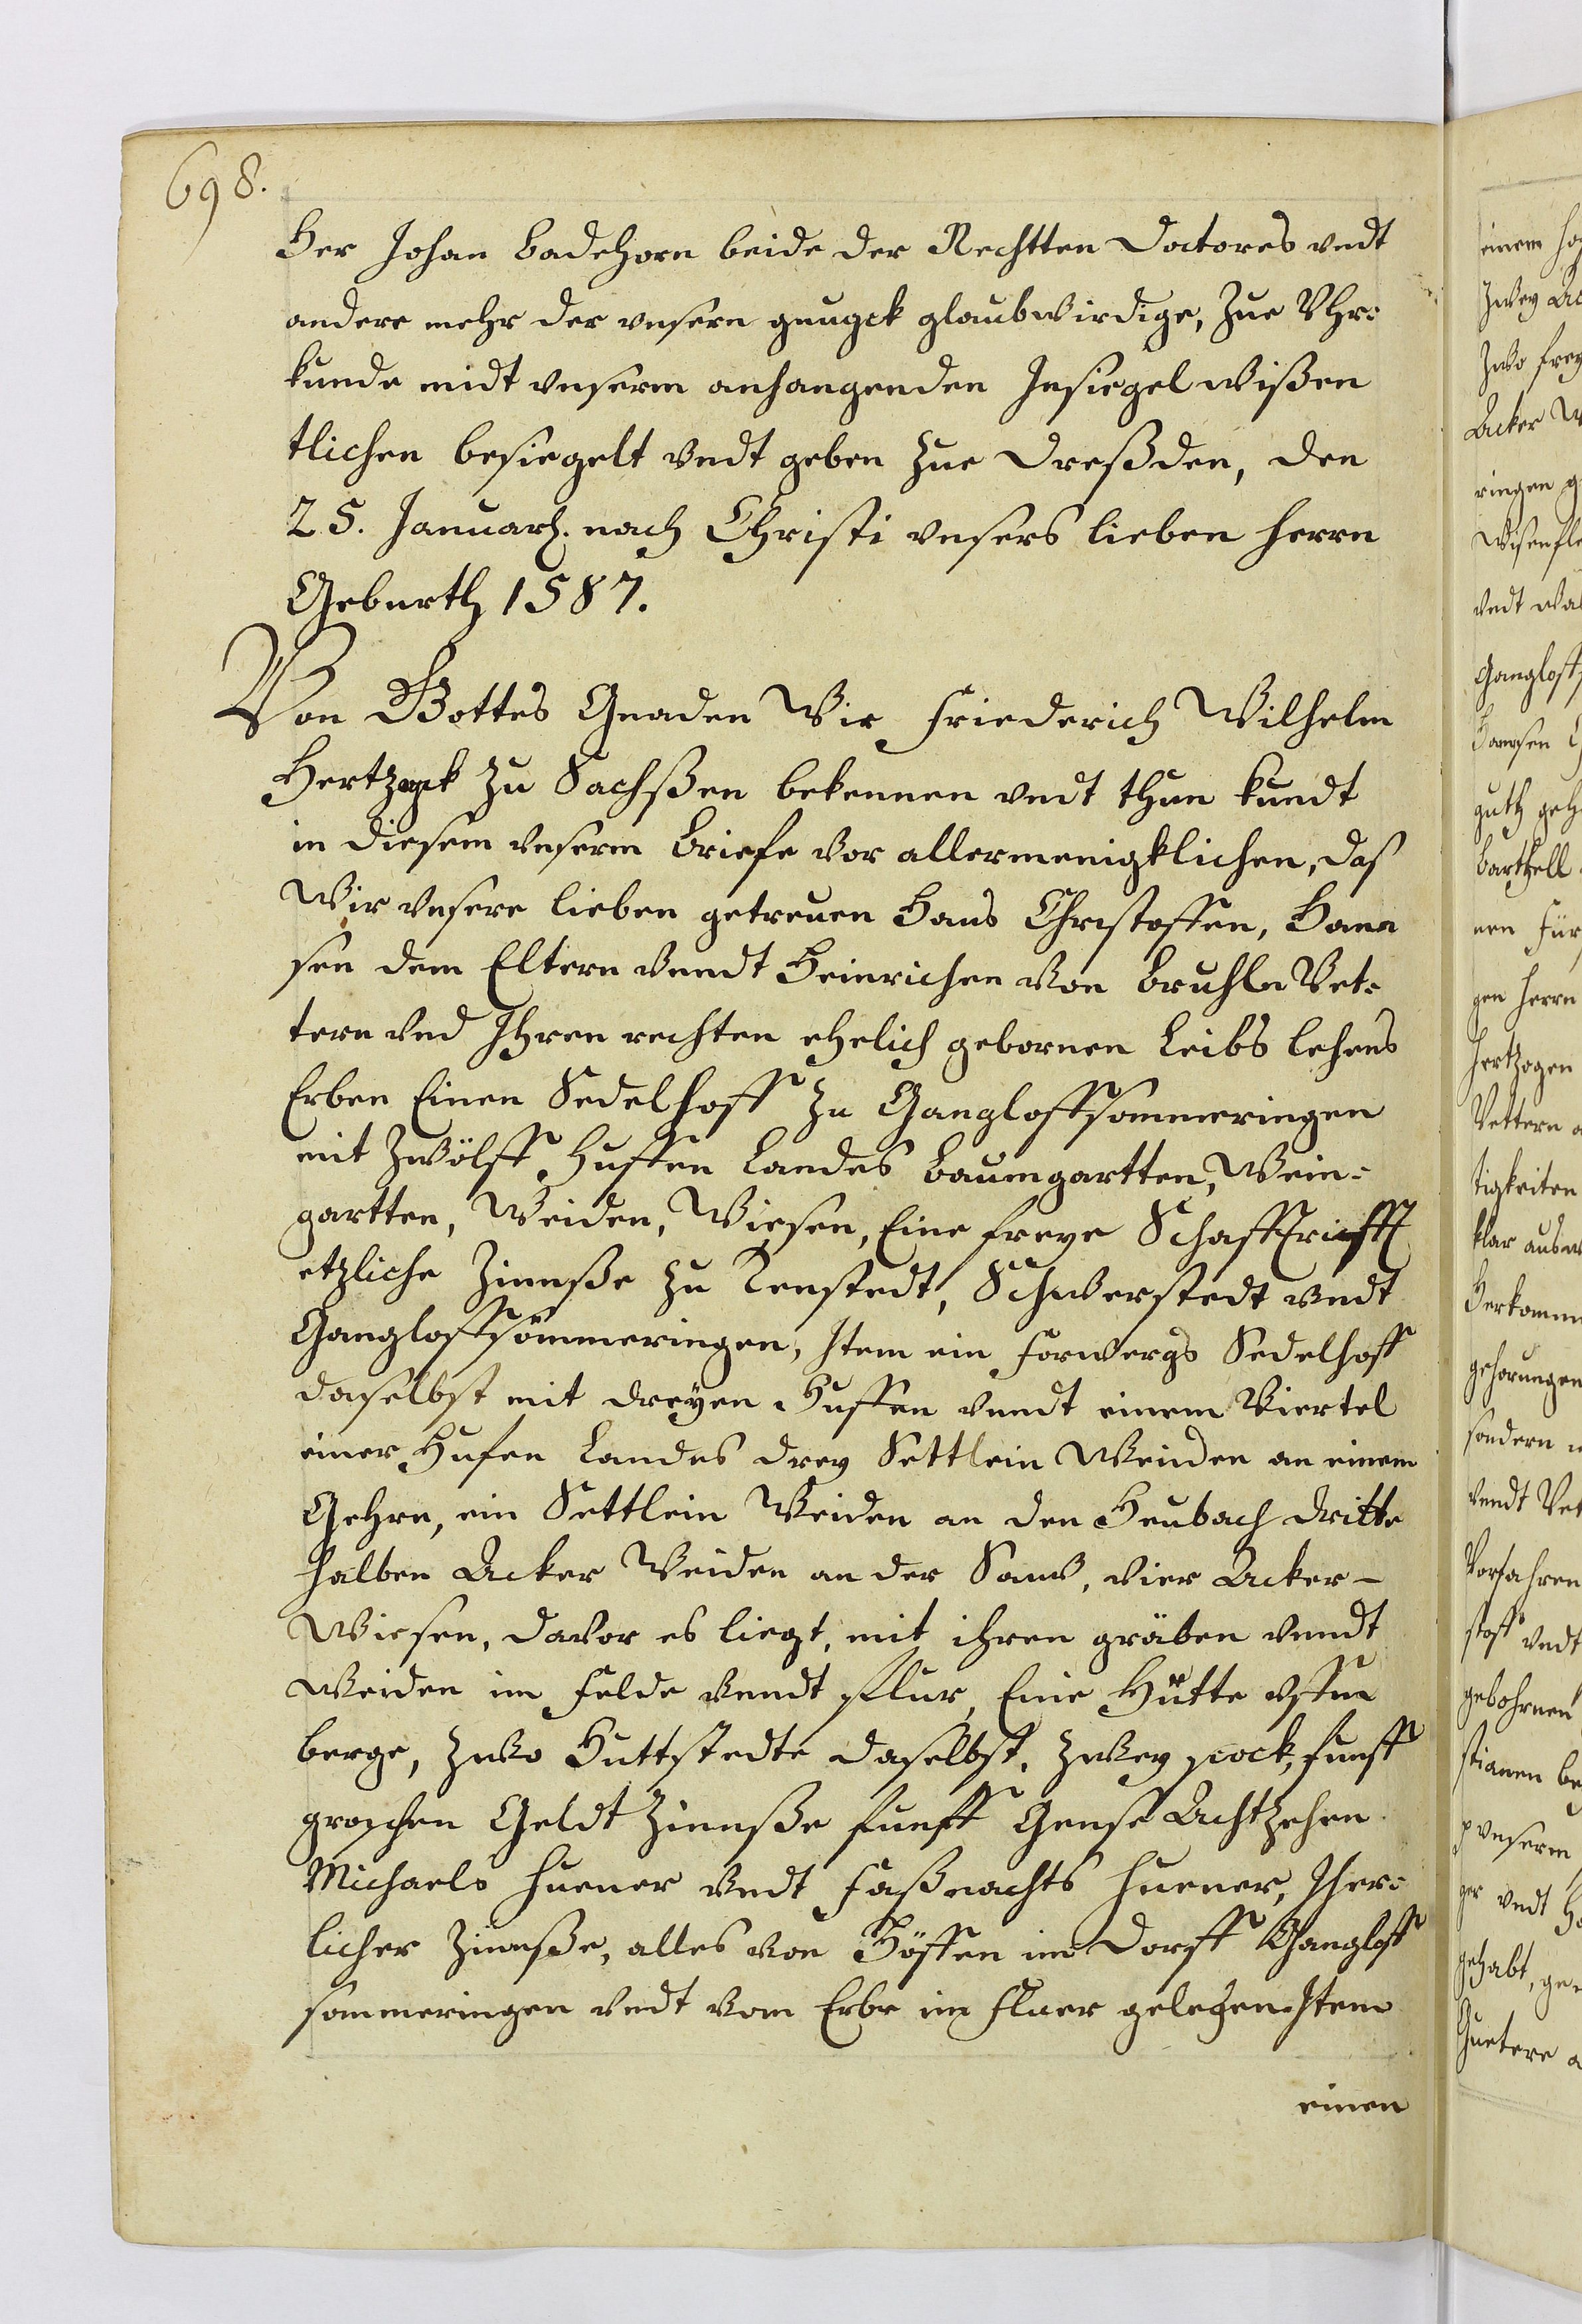 698.
Her Johan Badehorn beide der Rechtten Doctores vndt
andere mehr der vnsern gnugck glaubwirdige, Zue Vhr-
kunde midt vnserm anhangenden Insiegel wißen
tlichen besiegelt vndt geben zue Dreßden, den
25. Januarj. nach Christi vnsers lieben herrn
Geburth 1587.
Von Gottes Gnaden Wir Friederich Wilhelm
Hertzogk zu Sachßen bekennen vndt thun kundt
in diesem vnserm Briefe vor allermenigklichen, das
Wir vnsere lieben getreuen Hans Christoffen, Hann
sen dem Eltern vnndt Heinrichen von Bruhln Vet-
tern vnd Ihren rechten ehelich gebornen Leibs lehens
Erben Einen Sedelhoff zu Gangloffsommeringen
mit Zwölff Huffen Landes Baumgartten, Wein-
gartten, Weiden, Wiesen, Eine freye Schafftrifft
etzliche Zinnße zu Tenstedt, Schwerstedt vndt
Gangloffsömmeringen, Item ein Forwergs Sedelhoff
daselbst mit dreyen Huffen vnndt einem Viertel
einer Hufen Landes drey Settlein Weiden an einem
Gehrn, ein Settlein Weiden an den Heubach dritte
halben Acker Weiden an der , vier Acker-
Wiesen, davor es liegt, mit ihren gräben vnndt
Weiden im Felde vnndt Flur, Eine Hütte vffm
berge, zwo Huttstedte daselbst, zwey scock, funff
groschen Geldt Zinnße funff Gense Achtzehen
Michaels huener vndt Faßnachts huener, Jher-
licher Zinnße, alles von Höffen im Dorff Gangloff
sommeringen vndt vom Erbe im Fluer gelegen Item
einen
einem
Zwey
Zwo frey
Acker
ringen
vndt
Gangloff
guth
Barthell
nen Für
gen Herrn
Hertzogen
Vettern
tigkeiten
klar
Herkomm
gehorungen
sondern
vnndt Vet
Vorfahren
stoff vndt
gebohrnen
stianen
vnserm
ger vndt
gehabt, ge-
Guetere